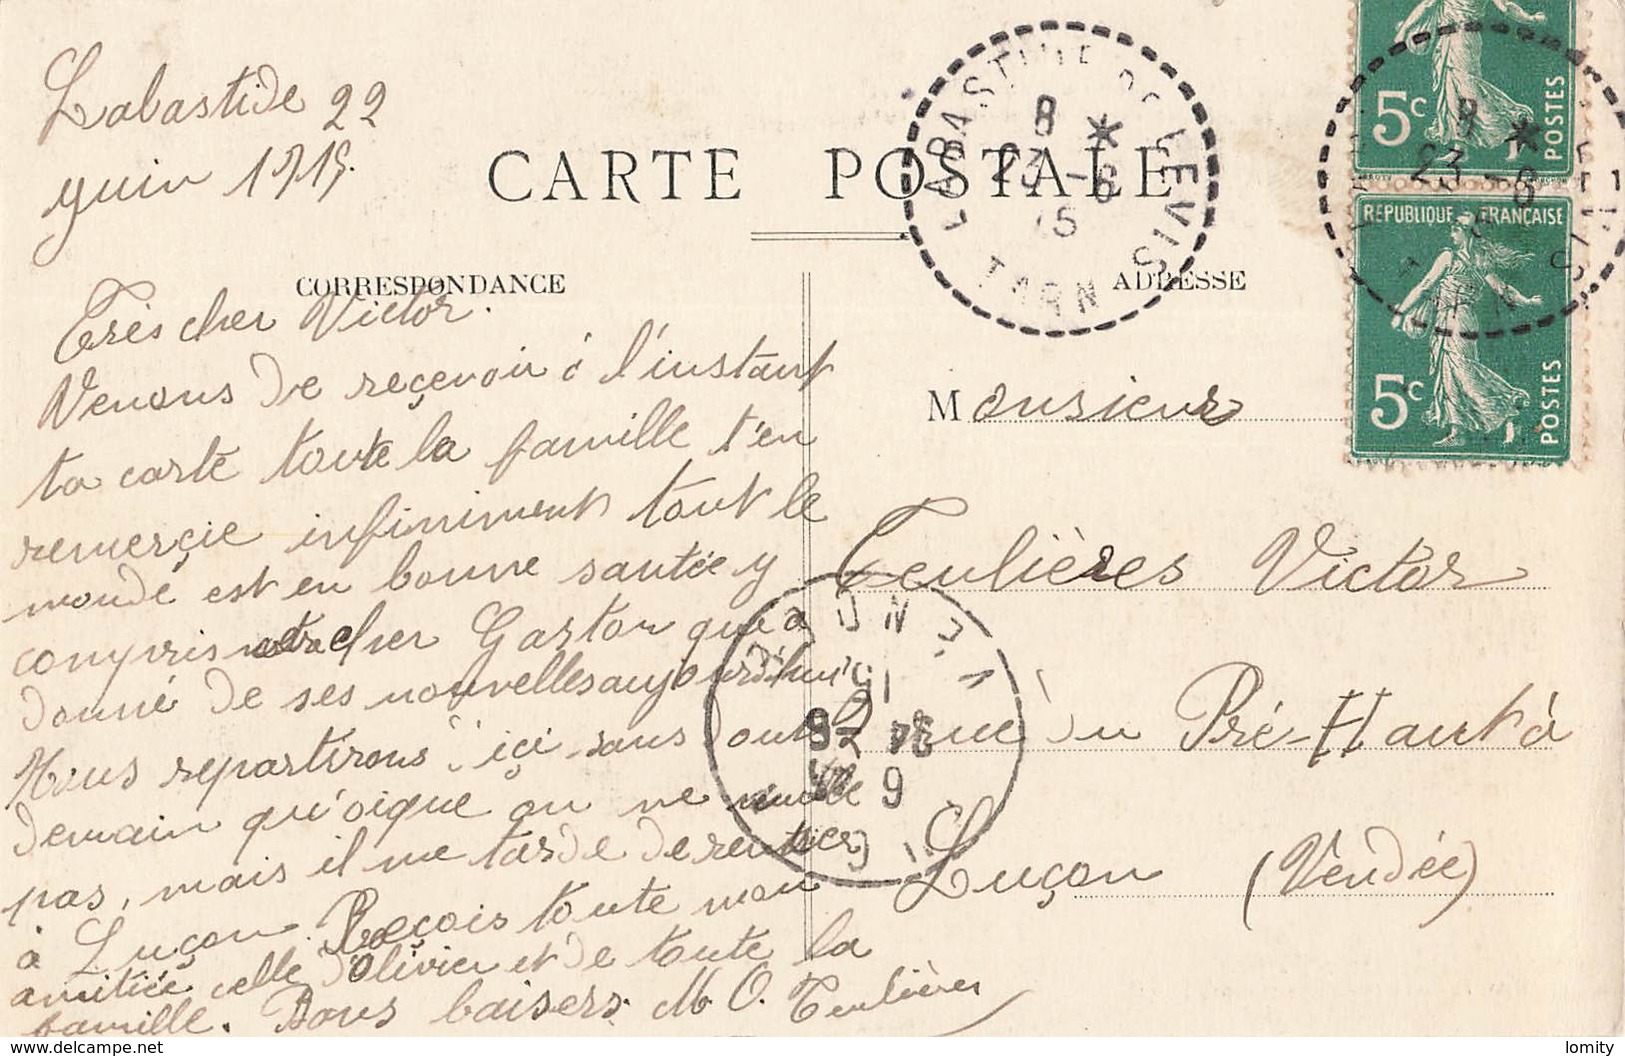 Labastide 22
juin 1915.
CARTE POSTALE
LABASTIDE DE LEVIS
8 *
23 -6
15
TARN
5c
POSTES
8 *
23 -6
TARN
REPUBLIQUE FRANÇAISE
5c
POSTES
CORRESPONDANCE
ADRESSE
Très cher Victor.
Venons de reçevoir à l'instant
ta carte toute la famille t'en
remerçie infiniment tout le
monde est en bonne santée y
compris notre cher Gaston qui a
donné de ses nouvelles aujourd'hui
Nous repartirons d'içi sans doute
demain quoique on ne
pas, mais il me tarde de rentrer
à Luçon Reçois toute mon
amitiée celle d'Olivier et de toute la
famille. Bons baisers. M O. Teulières
Monsieur
Teulières Victor
2 rue du Pré-Haut à
Luçon (Vendée)
delcampe.net
lomity